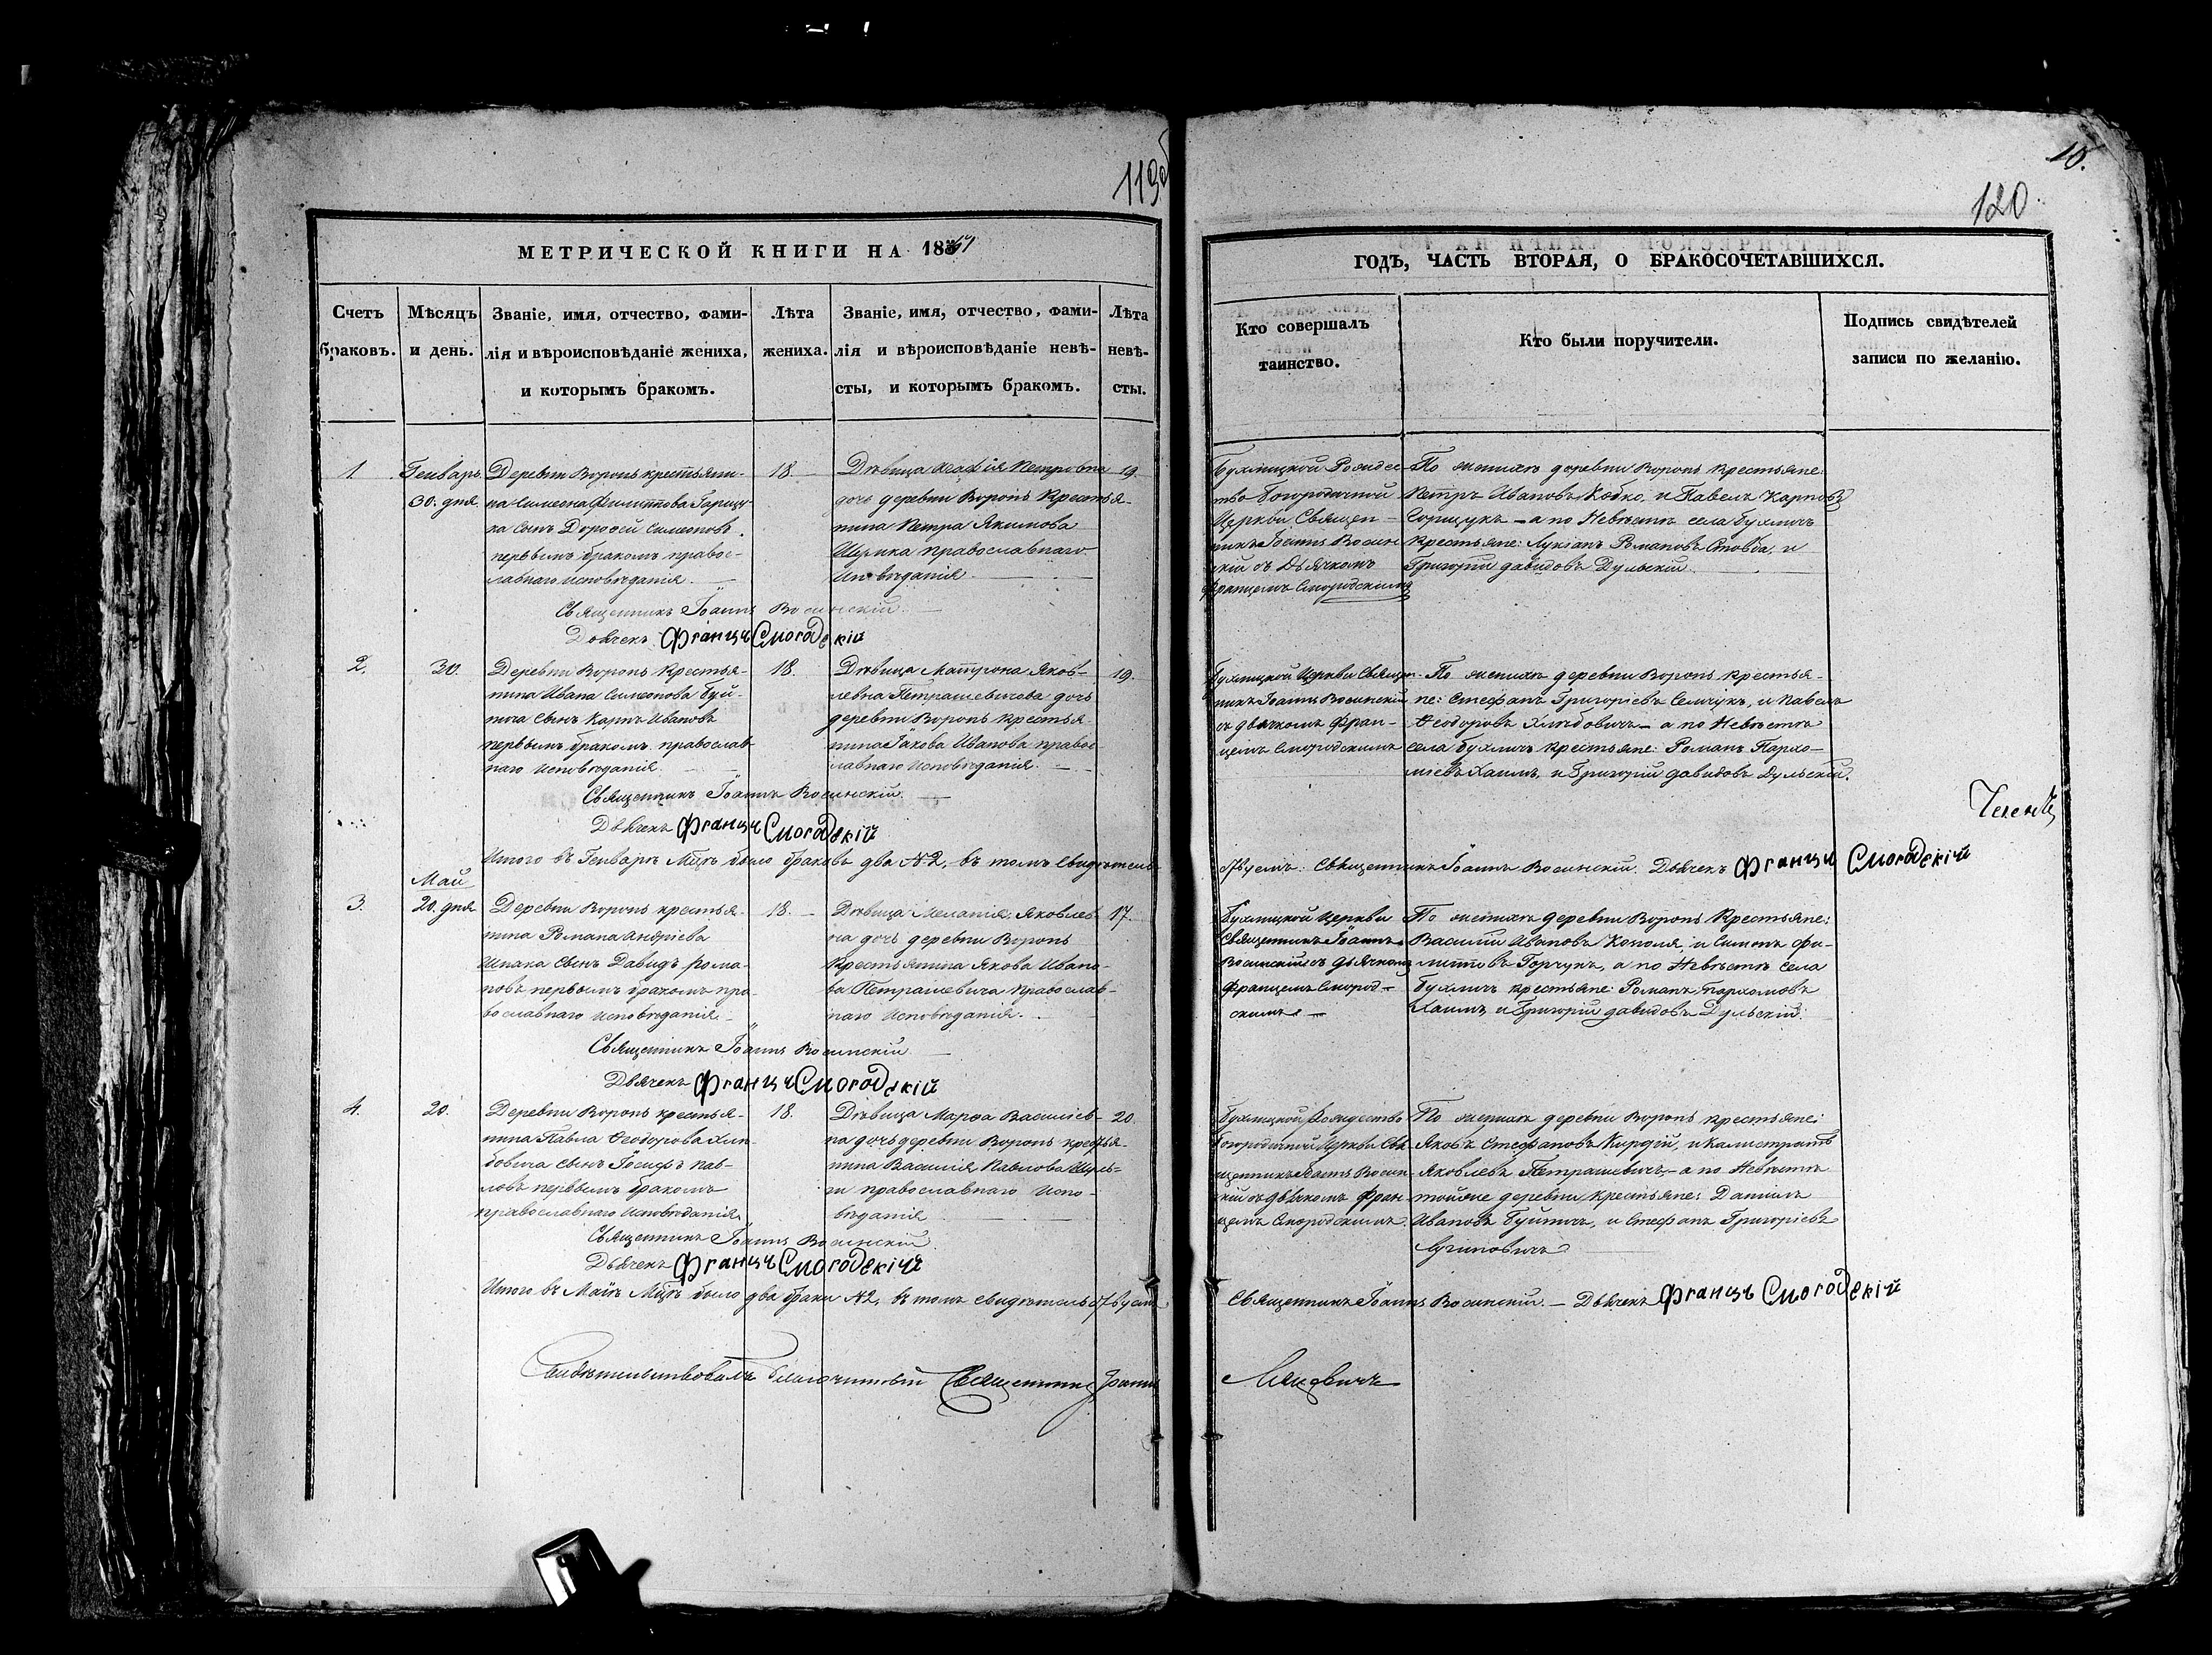 119 об
МЕТРИЧЕСКОЙ КНИГИ НА 1861
Счетъ браковъ.
Мѣсяцъ и день.
Званіе, имя, отчество, фами-
лія и вѣроисповѣданіе жениха,
и которымъ бракомъ.
Лѣта
жениха.
Званіе, имя, отчество, фами-
лія и вѣроисповѣданіе невѣ-
сты, и которымъ бракомъ.
Лѣта
невѣ-
сты.
1.
Генваръ
30. дня
Деревни Воронь крестьяни-
на Симеона Филиппова Горщу-
ка сынъ Дорофей Симеоновъ
первымъ бракомъ правос-
лавнаго исповѣданія.
18.
Дѣвица Агафія Петровна
дочь деревни Воронь крестья-
нина Петра Якимова
православнаго
исповѣданія
19.
Священникъ Іоаннъ Восинскій.
Дьячекъ Францъ Смогодскій
2.
30.
Деревни Воронь крестья-
нина Ивана Симеонова Буй-
нича сынъ Карпъ Ивановъ
первымъ бракомъ православ-
наго исповѣданія.
18.
Дѣвица Матрона Яков-
левна Петрашевичова дочь
деревни Воронь крестья-
нина Іакова Иванова правос-
лавнаго исповѣданія.
19.
Священникъ Іоаннъ Восинскій.
Дьячекъ Францъ Смогодскій
Итого въ Генварѣ Мцѣ было браковъ два №2, въ томъ свидѣтель-
Май
3.
20. дня
Деревни Воронь крестья-
нина Романа Андріева
Шпака сынъ Давидъ Рома-
новъ первымъ бракомъ пра-
вославнаго исповѣданія.
18.
Дѣвица Меланія Яковлев-
на дочь деревни Воронь
крестьянина Якова Ивано-
ва Петрашевича православ-
наго исповѣданія.
17.
Священникъ Іоаннъ Восинскій
Дьячекъ Францъ Смогодскій
4.
20.
Деревни Воронь крестья-
нина Павла Феодорова Хлѣ-
бовича сынъ Іосифъ Пав-
ловъ первымъ бракомъ
православнаго исповѣданія
18.
Дѣвица Марфа Василіев-
на дочь деревни Воронь крестья-
нина Василія Павлова
православнаго испо-
вѣданія
20.
Священникъ Іоаннъ Восинскій.
Дьячекъ Францъ Смогодскій
Итого въ Маѣ Мцѣ было два браки №2, въ томъ свидѣтельствуемъ
Свидѣтельствовалъ благочинный Священникъ Іоаннъ
10.
120
ГОДЪ, ЧАСТЬ ВТОРАЯ, О БРАКОСОЧЕТАВШИХСЯ.
Кто совершалъ
таинство.
Кто были поручители.
Подпись свидѣтелей
записи по желанію.
Бухлицкой Рождес-
тво Богородичной
Церкви Священ-
никъ Іоаннъ Восин-
скій съ Дьячкомъ
Францемъ Смородскимъ
По женихѣ деревни Воронь крестьяне:
Петръ Ивановъ Кобко, и Павелъ Карповъ
Горщукъ — а по Невѣстѣ села Бухличъ
крестьяне: Лукіанъ Романовъ Стовба, и
Григорій Давидовъ Дульскій.
Бухлицкой Церкви Священ-
никъ Іоаннъ Восинскій
съ дьячкомъ Фран-
цемъ Смородскимъ
По женихѣ деревни Воронь крестья-
не: Стефанъ Григоріевъ Семчукъ, и Павелъ
Феодоровъ Хлѣбовичъ — а по Невѣстѣ
села Бухличъ крестьяне: Романъ Пархо-
міевъ Хаимъ, и Григорій Давидовъ Дульскій.
ствуемъ: Священникъ Іоаннъ Восинскій. Дьячекъ Францъ Смогодскій
Бухлицкой Церкви
Священникъ Іоаннъ
Восинскій съ дьячкомъ
Францемъ Смород-
скимъ
По женихѣ деревни Воронь крестьяне:
Василій Ивановъ Коноля, и Симонъ Фи-
липповъ Горчукъ, а по Невѣстѣ села
Бухличъ крестьяне: Романъ Пархомовъ
Хаимъ и Григорій Давидовъ Дульскій.
Бухлицкой Рождество
Богородичной Церкви Свя-
щенникъ Іоаннъ Восин-
скій съ дьячкомъ Фран-
цемъ Смородскимъ.
По женихѣ деревни Воронь крестьяне:
Яковъ Стефановъ Кирдей, и Калистратъ
Яковлевъ Петрашевичъ, — а по Невѣстѣ
тойже деревни крестьяне: Даніилъ
Ивановъ Буйничъ, и Стефанъ Григоріевъ
Священникъ Іоаннъ Восинскій. — Дьячекъ Францъ Смогодскій